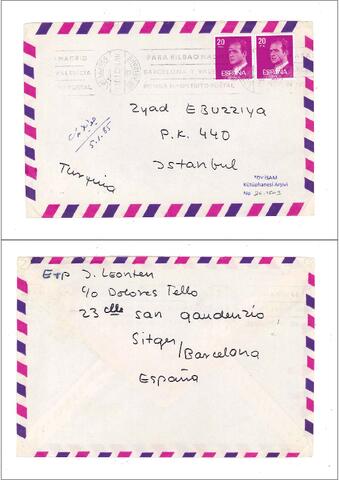 MADRID
VALENCIA
POSTAL
PARA BILBAO MA
BARCELONA Y VAL
DISTRITO POSTAL
20
ESPAÑA
20
ESPAÑA
Zyad EBUZZIYA
P.K. 440
Istanbul
5.1.85
Turquia
TDV İSAM
Kütüphanesi Arşivi
No
Exp J. Leonten
c/o Dolores Tello
23 clle san gaudenzio
Sitges/Barcelona
España